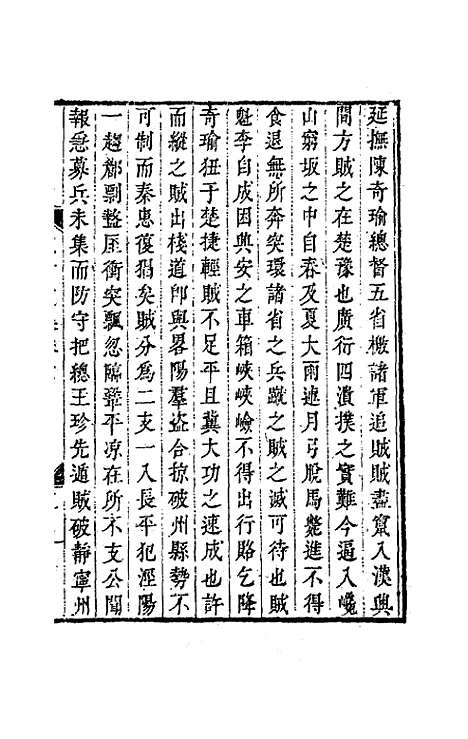 延撫陳奇瑜總督五省檄諸軍追賊賊盡竄入漢興
間方賊之在楚豫也廣衍四潰撲之實難今逼入巉
山窮坂之中自春及夏大雨連月弓脫馬斃進不得
食退無所奔突環諸省之兵蹴之賊之滅可待也賊
魁李自成困興安之車箱峽峽嶮不得出行賂乞降
奇瑜狃于楚捷輕賊不足平且兾大功之速成也許
而縱之賊出棧道卽與畧陽羣盗合掠破州縣勢不
可制而秦患復猖矣賊分爲二支一入長平犯涇陽
一趨鄜剽盩厔衝突飄忽臨鞏平凉在所不支公聞
報急募兵未集而防守把總王珍先遁賊破靜寧州